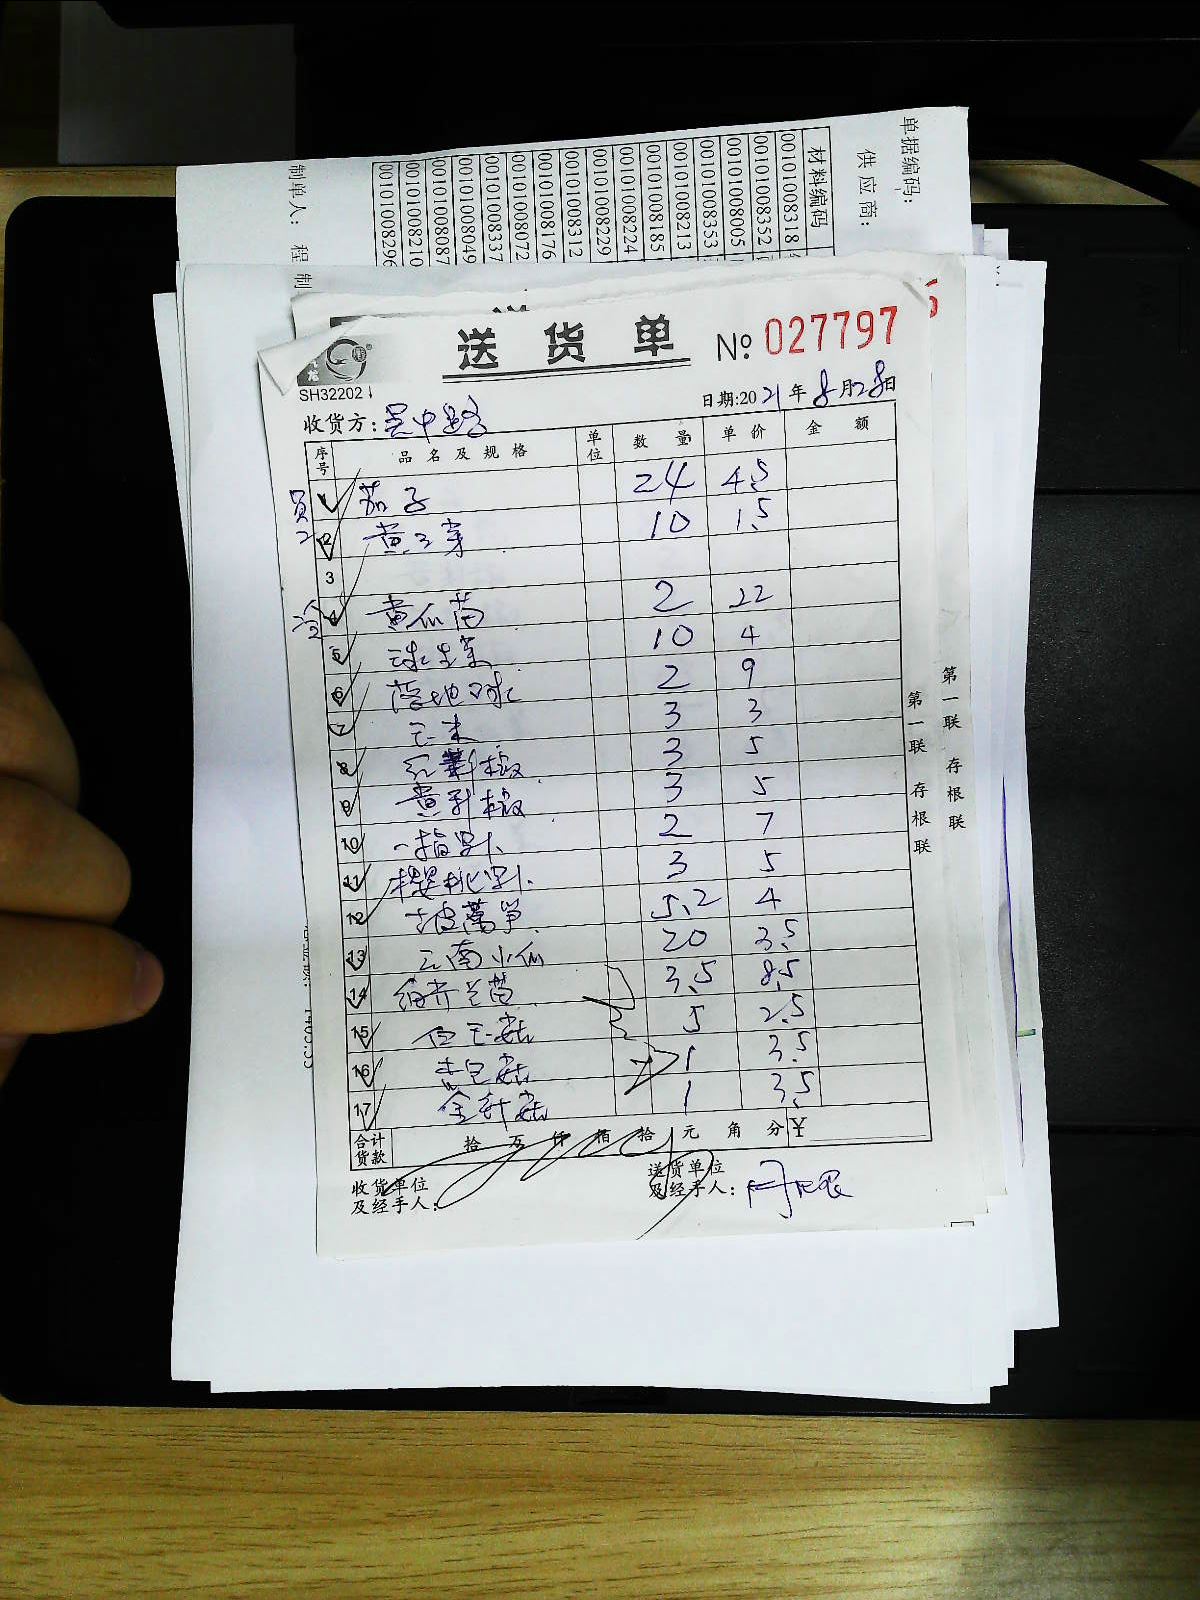 单据编码:
供应商:
材料编码
001010008318
001010008352
001010008005
001010008353
001010008213
001010008185
001010008224
001010008229
001010008312
001010008176
001010008072
001010008337
001010008049
001010008087
001010008210
001010008296
制单人: 程
制
送货单 № 027797
SH32202
日期:2021年8月28日
收货方: 吴中路
序号 品名及规格 单位 数量 单价 金额
员
1 茄子 24 4.5
2 黄豆芽 10 1.5
3
冷
4 黄瓜苗 2 22
5 球生菜 10 4
6 落地球 2 9
7 玉米 3 3
8 红彩椒 3 5
9 黄彩椒 3 5
10 一指 2 7
11 樱桃 3 5
12 去皮莴笋 5.2 4
13 云南小瓜 20 3.5
14 细芥兰苗 3.5 8.5
15 白玉菇 5 2.5
16 杏鲍菇 1 3.5
17 金针菇 1 3.5
合计货款 拾 万 仟 佰 拾 元 角 分 ¥
收货单位及经手人:
送货单位及经手人:
第一联 存根联
第一联 存根联